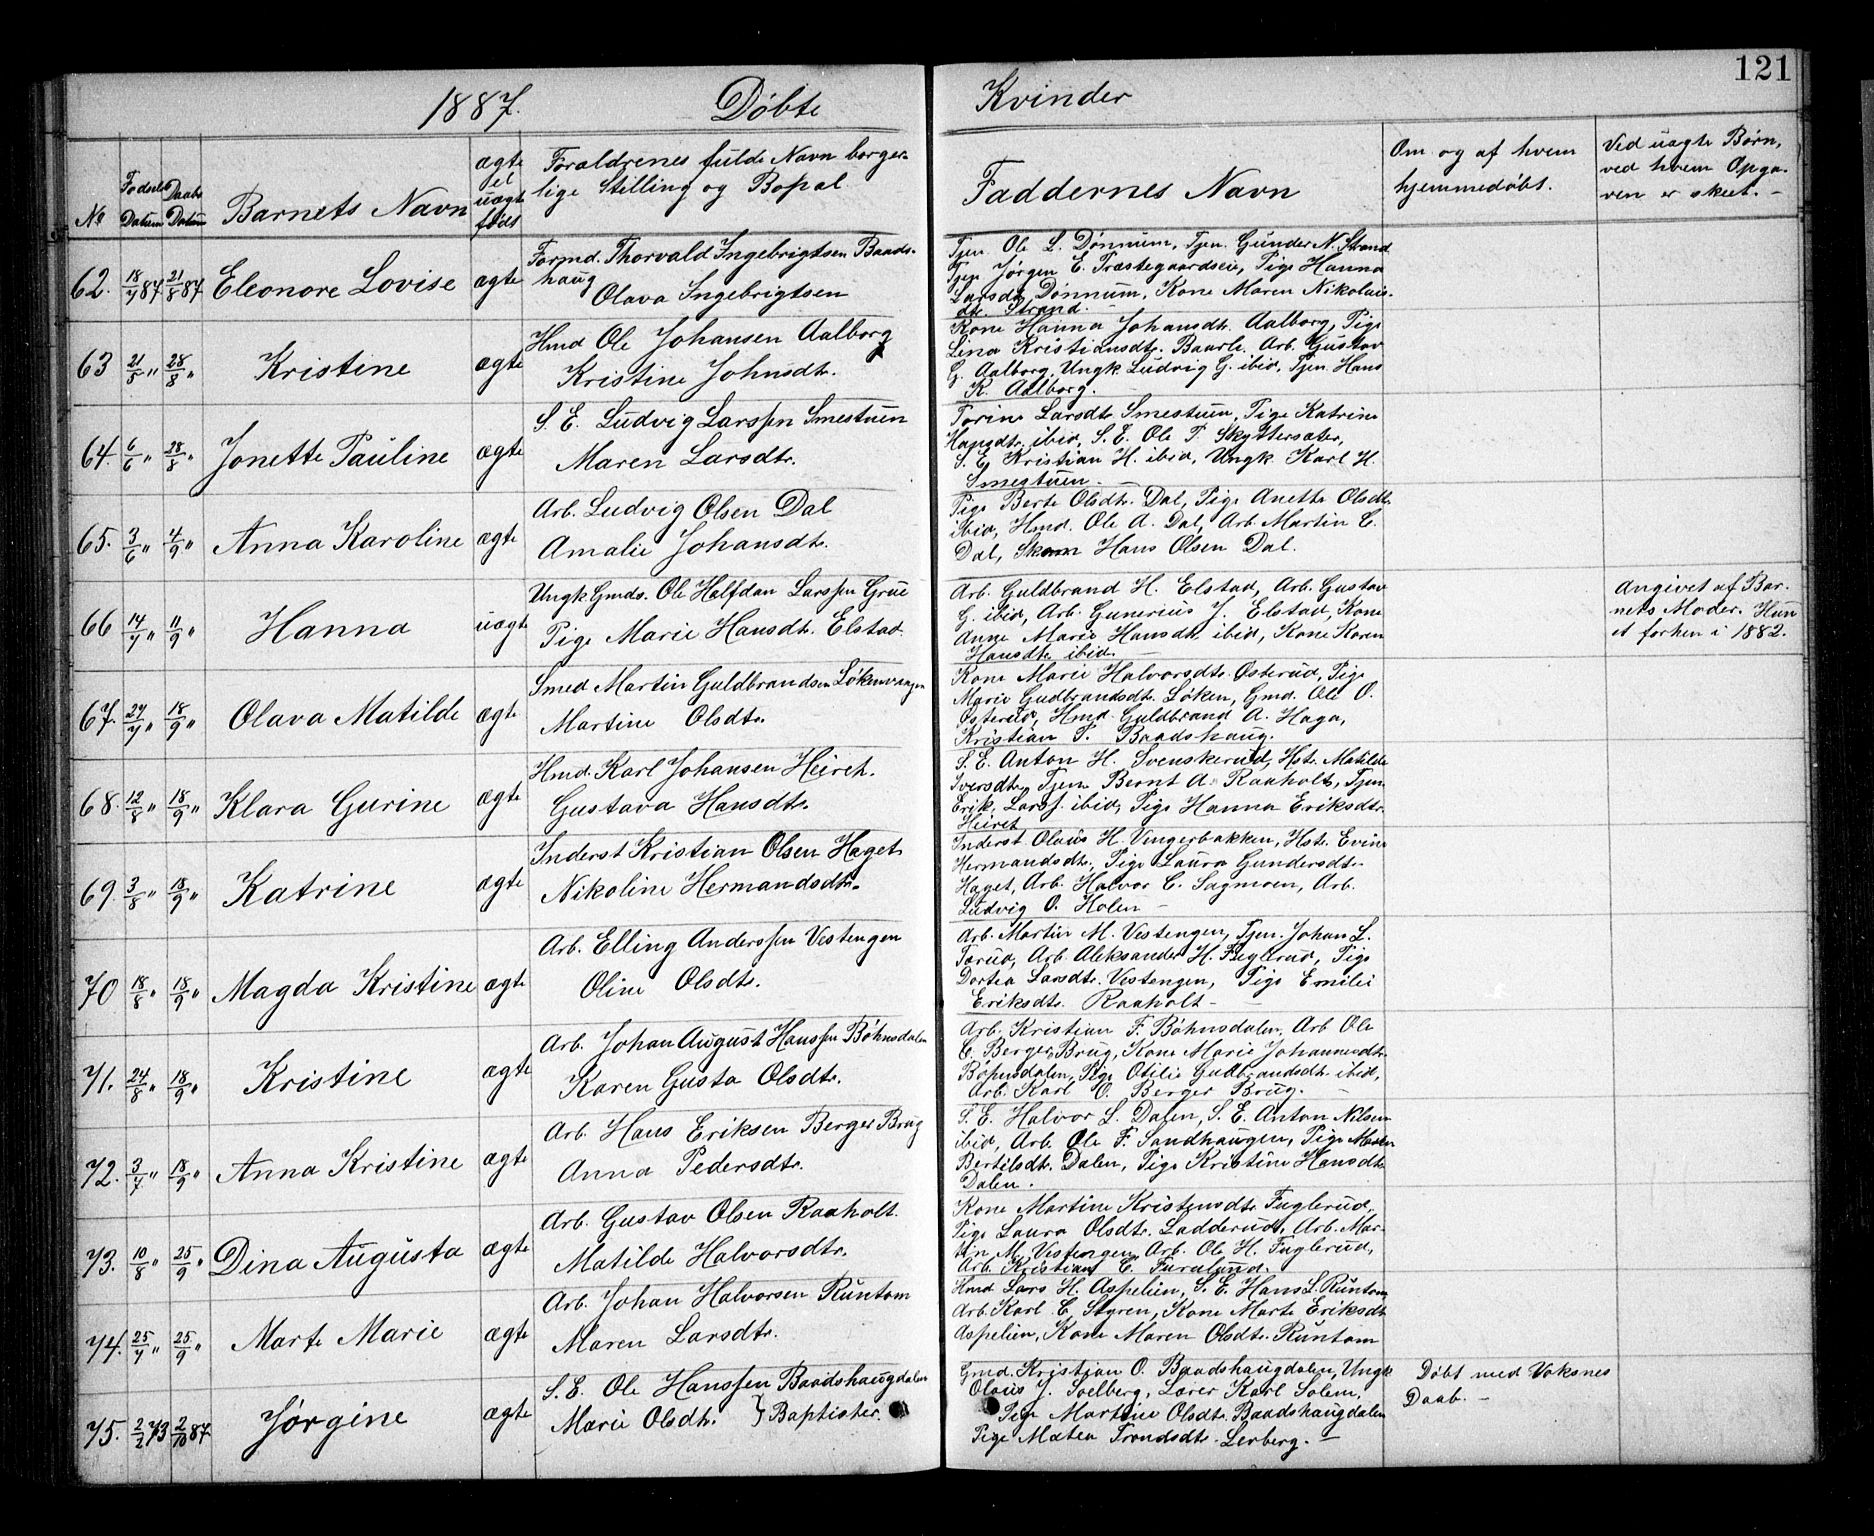 121
1887. Døbte Kvinder
No
Fødsels Datum
Daabs Datum
Barnets Navn
ægte el uægte født
Forældrenes fulde Navn borger-
lige Stilling og Bopæl
Faddernes Navn
Om og af hvem
hjemmedøbt.
Ved uægte Børn,
ved hvem Opga-
ven er skeet. -
62. 18/7 87 21/8 87 Eleonore Lovise ægte
Formd. Thorvald Ingebrigtsen Baads-
haug
Olava Ingebrigtsen
Tjen. Ole L. Dønnum, Tjen. Gunder N. Strand
Tjen Jørgen E. Præstegaardseie, Pige Hanna
Larsdt. Dønnum, Kone Maren Nikolais-
dt. Strand.
63 21/5 " 28/8 " Kristine ægte
Hmd Ole Johansen Aalborg
Kristine Johnsdt.
Kone Hanna Johansdt. Aalborg, Pige
Lina Kristiansdt. Arb. Gustav
G. Aalborg, Ungk. Ludvig G. ibid, Tjen. Hans
K. Aalborg.
64. 6/6 " 28/8 " Jonette Pauline ægte
S. E. Ludvig Larssen Smestuen
Maren Larsdtr.
Torine Larsdtr Smestuen, Pige Katrine
Hansdtr. ibid, S. E. Ole P. Skyttersæter,
S. E. Kristian H. ibid, Ungk Karl H.
Smestuen. -
65. 3/6 " 4/9 " Anna Karoline ægte
Arb. Ludvig Olsen Dal
Amalie Johansdt.
Pige Berte Olsdtr. Dal, Pige Anette Olsdt.
ibid, Hmd. Ole A. Dal, Arb. Martin E.
Dal, Skom Hans Olsen Dal.
66 14/7 " 11/9 " Hanna uægte
Ungk Gmds. Ole Halfdan Larssen Grue
Pige Marie Hansdt. Elstad.
Arb. Guldbrand H. Elstad, Arb. Gustav
G. ibid, Arb. Gunerius J. Elstad, Kone
Anne Marie Hansdt. ibid, Kone Karen
Hansdt. ibid. -
Angivet af Bar-
nets Moder. Hun
et forhen i 1882.
67. 27/7 " 18/9 " Olava Matilde ægte
Smed Martin Guldbrandsen Løkenvangen
Martine Olsdtr.
Kone Marie Halvorsdtr. Østerud, Pige
Marie Gudbrandsdt. Løken, Gmd. Ole O.
Østerud, Hmd. Guldbrand A. Haga,
Kristian P. Baadshaug.
68. 12/8 " 18/9 " Klara Gurine ægte
Hmd. Karl Johansen Heiret.
Gustava Hansdtr.
S. E. Anton H. Svenskerud, Hst. Matilde
Iversdtr, Tjen Bernt A. Raaholt, Tjen.
Erik Larss. ibid, Pige Hanna Eriksdtr.
Heiret
69. 3/8 " 18/9 " Katrine ægte
Inderst Kristian Olsen Haget
Nikoline Hermandsdtr.
Inderst Olaus H. Vingerbakken, Hst. Evine
Hermandsdt., Pige Laura Gundersdt.
Haget, Arb. Halvor C. Sagmoen, Arb.
Ludvig O. Holen -
70 18/8 " 18/9 " Magda Kristine ægte
Arb. Elling Anderssen Vestengen
Oline Olsdtr.
Arb. Martin M. Vestengen, Tjen. Johan L.
Torud, Arb Aleksander H. Fuglerud, Pige
Dortea Larsdt. Vestengen, Pige Emilie
Eriksdtr. Raaholt -
71. 24/8 " 18/9 " Kristine ægte
Arb. Johan August Hanssen Bøhnsdalen
Karen Gusta Olsdtr.
Arb. Kristian F. Bøhnsdalen, Arb Ole
E. Berger Brug, Kone Marie Johannesdt.
Bøhnsdalen, Pige Otilie Gulbrandsdt. ibid,
Arb. Karl O. Berger Brug. -
72. 3/7 " 18/9 " Anna Kristine ægte
Arb. Hans Eriksen Berger Brug
Anna Pedersdtr.
S. E. Halvor L. Dalen, S. E. Anton Nilsen
ibid, Arb. Ole F. Sandhaugen, Pige Maren
Bertilsdt. Dalen, Pige Kristine Hansdt.
Dalen.
73. 10/8 " 25/9 " Dina Augusta ægte
Arb. Gustav Olsen Raaholt
Matilde Halvorsdtr.
Kone Martine Kristensdtr Fuglerud,
Pige Laura Olsdtr. Ladderud, Arb. Mar-
tin M. Vestengen, Arb. Ole H. Fuglerud,
Arb. Kristian E. Furulund.
74. 25/7 " 25/9 " Marte Marie ægte
Arb. Johan Halvorsen Runtom
Maren Larsdtr.
Hmd Lars H. Aspelien, S. E. Hans L. Runtom
Arb. Karl E. Styren, Kone Marte Eriksdt.
Aspelien, Kone Maren Olsdtr. Runtom
75. 2/2 73 2/10 87 Jørgine ægte
S. E. Ole Hanssen Baadshaugdalen
Marie Olsdt. } Baptister.
Gmd. Kristian O. Baadshaugdalen, Ungk
Olaus J. Solberg, Lærer Karl Solem,
Pige Martine Olsdtr. Baadshaugdalen
Pige Matea Trondsdt. Lerberg. -
Døbt med Voksnes
Daab. -